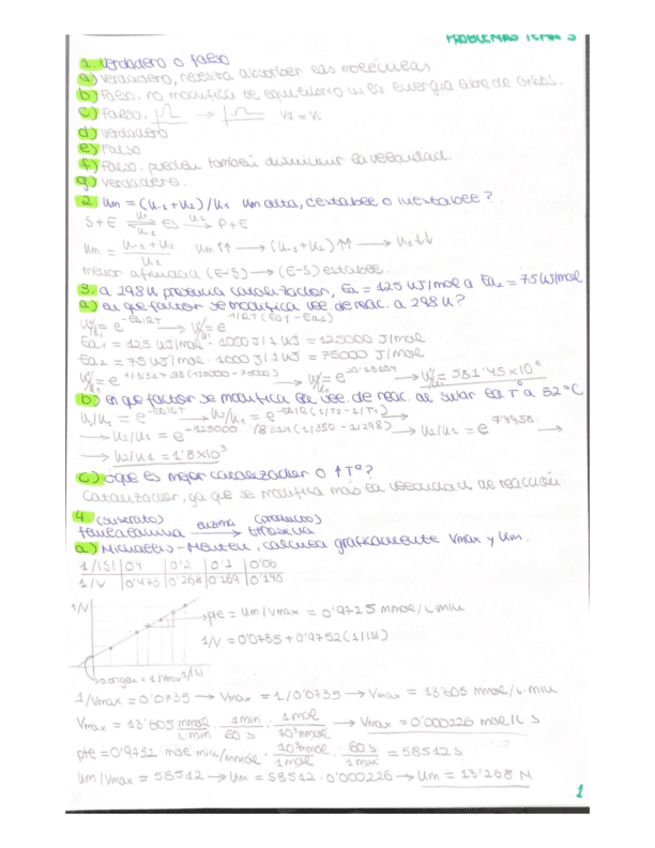 PROBLEMAS TEMA 3
1. Verdadero o falso
a) Verdadero, necesita absorber las moléculas
b) Falso, no modifica el equilibrio ni la energía libre de Gibbs.
c) Falso,
d) Verdadero
e) Falso
f) Falso, pueden también disminuir la velocidad.
g) Verdadero.
2. Km = (K-1 + K2)/K1 Km alta, ES estable o inestable?
S+E ES P+E
Km = K-1 + K2 / K1 Km ↑↑ → (K-1+K2)↑↑ → K1↓↓
menor afinidad (E-S) → (E-S) estable.
3. a 298K presencia catalizador, Ea1 = 125 KJ/mol a Ea2 = 75 KJ/mol
a) En qué factor se modifica vel. de reac. a 298K?
Ea1 = 125 KJ/mol · 1000J/1KJ = 125000 J/mol
Ea2 = 75 KJ/mol · 1000J/1KJ = 75000 J/mol
b) en qué factor se modifica la vel. de reac. al subir la Tª a 52ºC
→ K2/K1 = 1'8x10³
c) ¿Qué es mejor catalizador o ↑Tª?
Catalizador, ya que se modifica más la velocidad de reacción
4. (sustrato) enzima (producto)
a) Michaelis-Menten, calcula gráficamente Vmax y Km.
1/|S| 0'4 0'2 0'1 0'06
1/V 0'475 0'268 0'169 0'140
1/V
pte = Km/Vmax = 0'9725 mmol/L min
1/V = 0'0735 + 0'9752 (1/|S|)
1/|S|
1/Vmax = 0'0735 → Vmax = 1/0'0735 → Vmax = 13'605 mmol/L·min
Vmax = 13'605 mmol/L min · 1min/60 s · 1mol/10³mmol → Vmax = 0'000226 mol/L s
pte = 0'9752 mol min/mmol · 10³mmol/1mol · 60s/1min = 58512 s
Km/Vmax = 58512 → Km = 58512 · 0'000226 → Km = 13'268 M
1